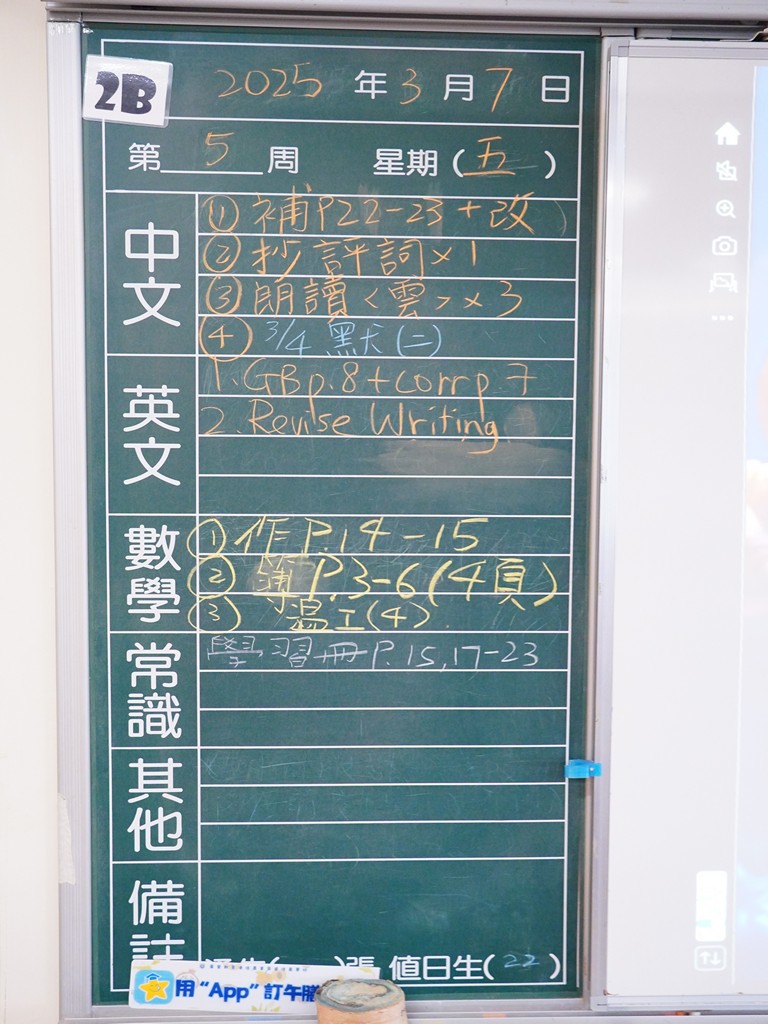 2B
2025 年 3 月 7 日
第 5 周 星期 (五)
中文
① 補P22-23+改
② 抄評詞×1
③ 朗讀<雲>×3
④ 3/4 默(二)
英文
1. GB p.8 + corr p.7
2. Revise Writing
數學
① 作 P.14-15
② 簿 P.3-6 (4頁)
③ 溫工(4)
常識
學習冊 P.15,17-23
其他
備註
張 值日生(22)
用 “App” 訂午膳